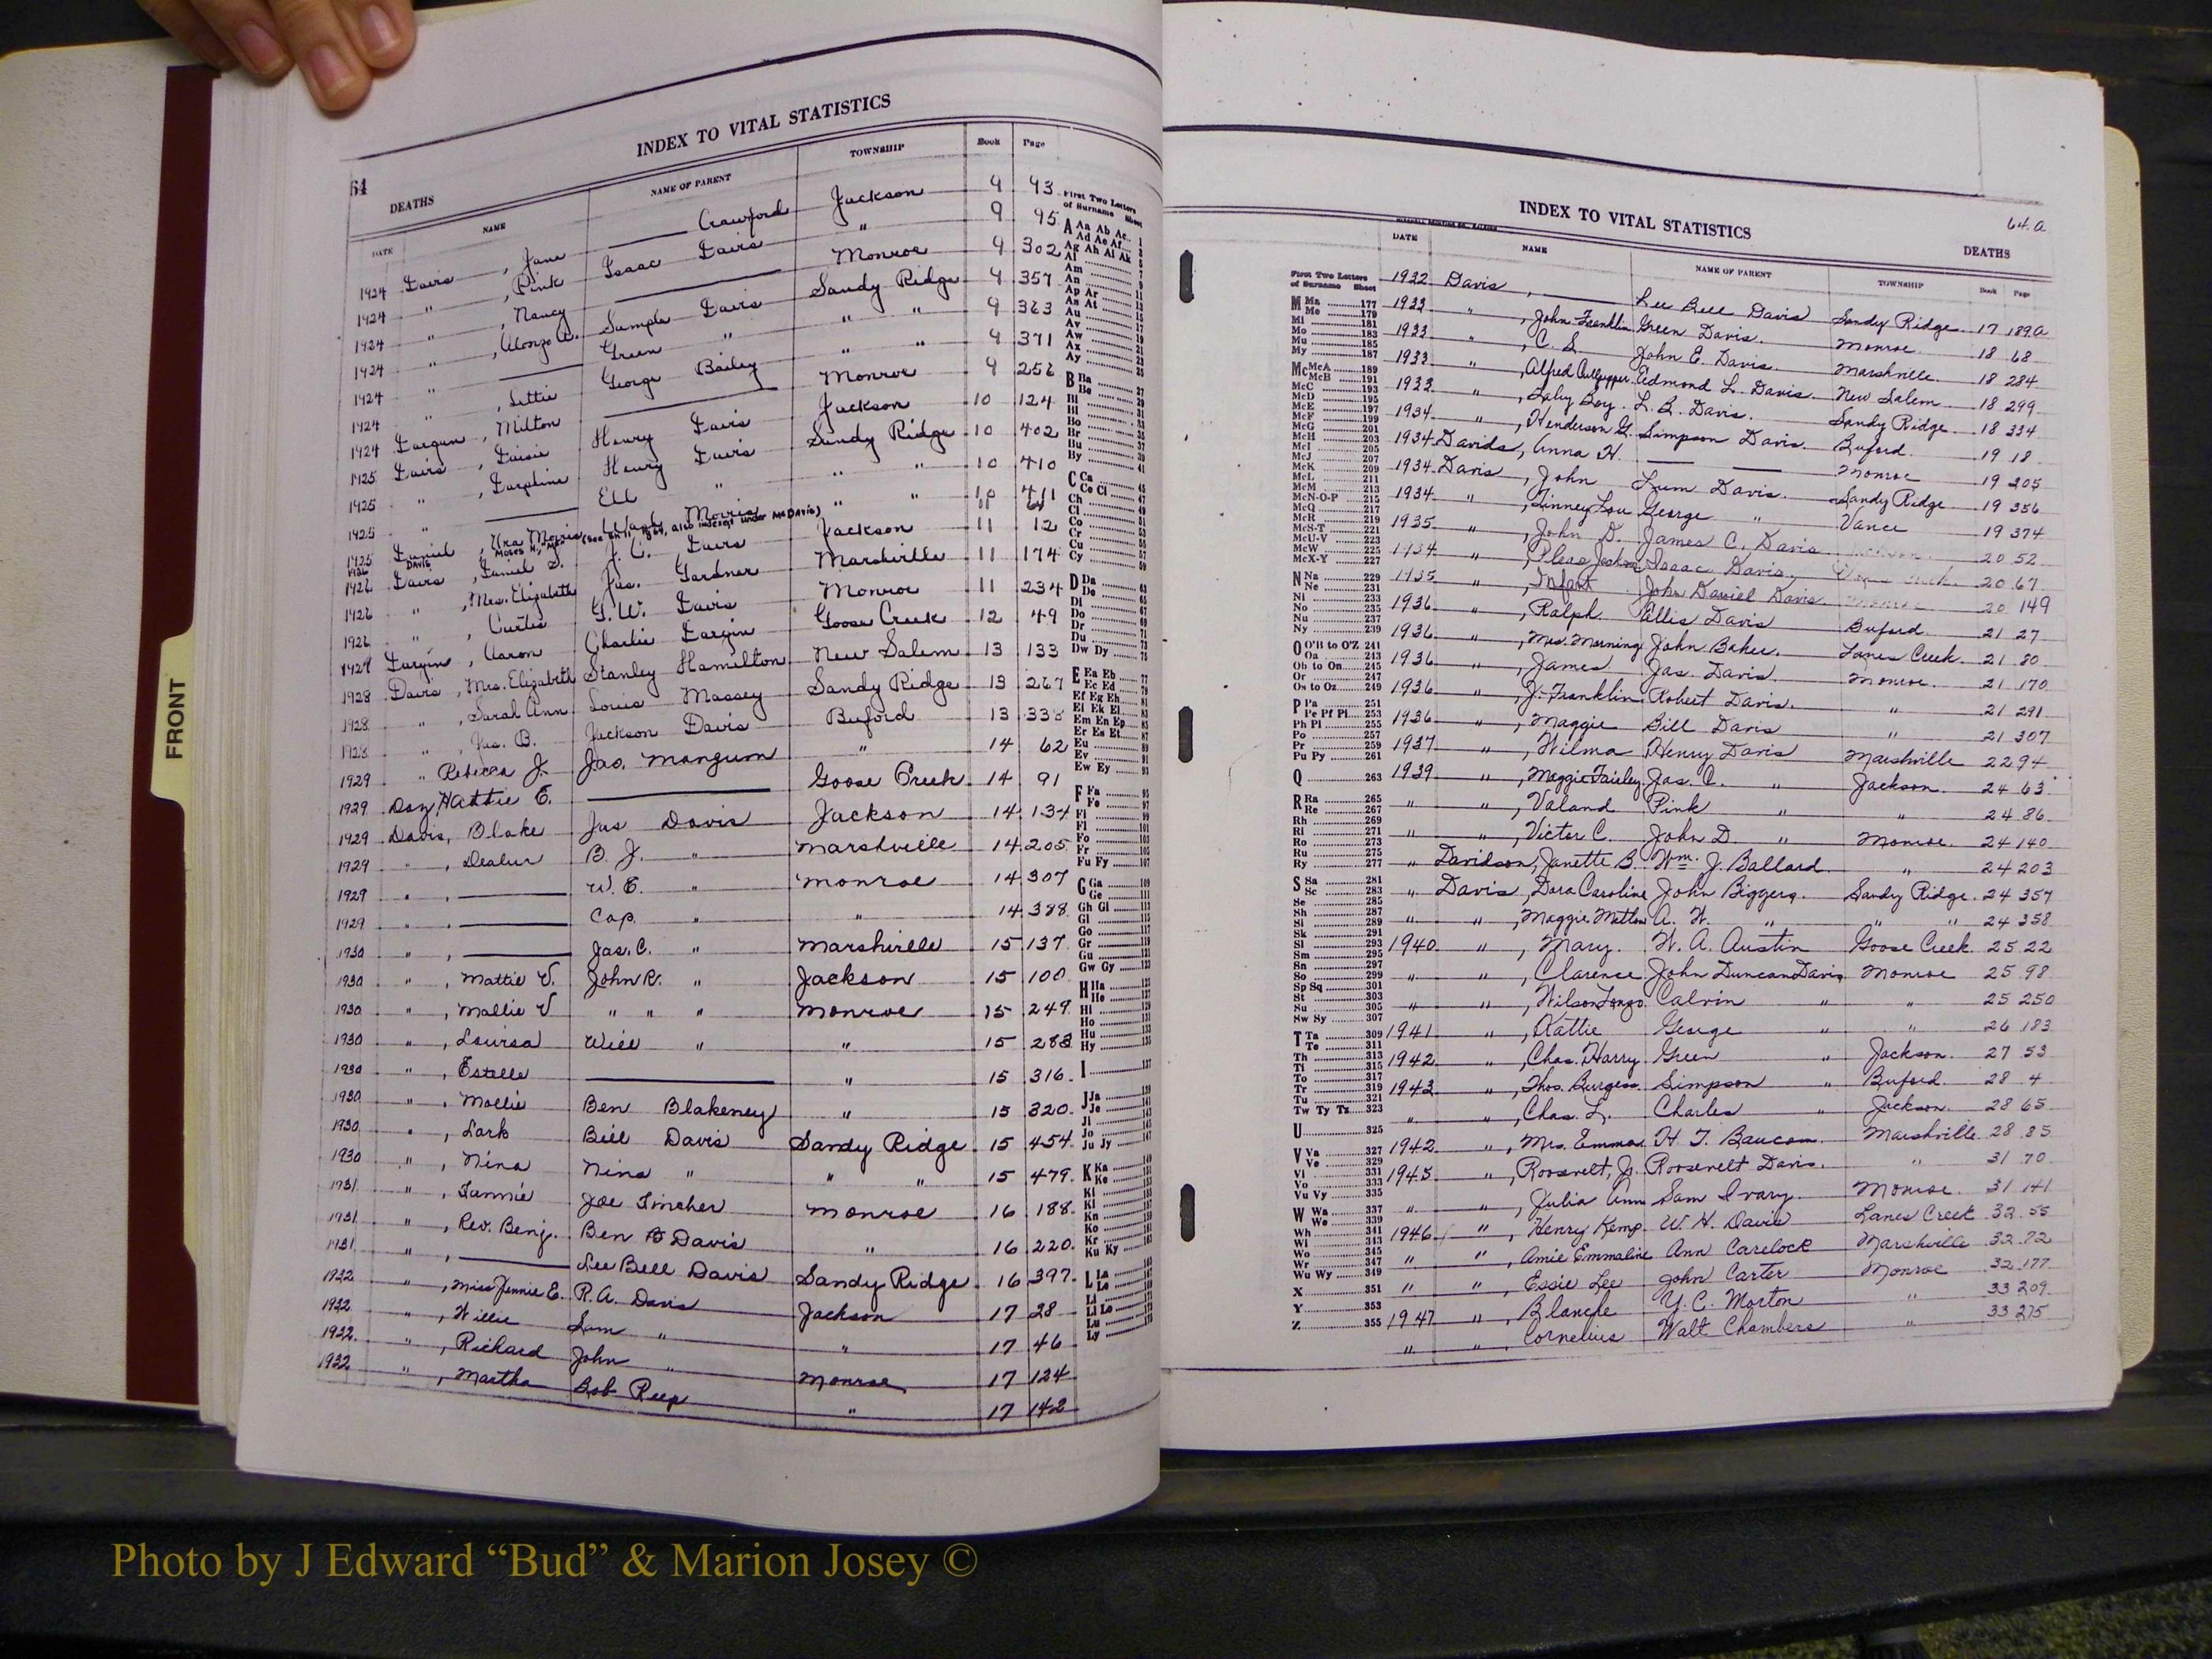 FRONT
64
INDEX TO VITAL STATISTICS
DEATHS
DATE NAME NAME OF PARENT TOWNSHIP Book Page
1924 Davis, Jane —— Crawford Jackson 9 93
1924 " , Pink Isaac Davis " 9 95
1924 " , Nancy —— Monroe 9 302
1924 " , Alonzo A. Sample Davis Sandy Ridge 9 357
1924 " —— Green " " " 9 363
1924 " , Lettie George Bailey " " 9 371
1924 Dargan, Milton —— Monroe 9 256
1925 Davis, Daisie Henry Davis Jackson 10 124
1925 " , Darphine Henry Davis Sandy Ridge 10 402
1925 " —— Ell " " " 10 410
1925 Daniel, Ura Morris Morris " " 10 411
1926 Davis, Daniel S. J. C. Davis Jackson 11 12
1926 " , Mrs. Elizabeth Jas. Gardner Marshville 11 174
1926 " , Curtis G. W. Davis Monroe 11 234
1927 Dargin, Aaron Charlie Dargin Goose Creek 12 49
1928 Davis, Mrs. Elizabeth Stanley Hamilton New Salem 13 133
1928 " , Sarah Ann Louis Massey Sandy Ridge 13 267
1928 " , Jas. B. Jackson Davis Buford 13 338
1929 " Rebecca J. Jao. Mangum " 14 62
1929 Day, Hattie E. —— Goose Creek 14 91
1929 Davis, Blake Jas Davis Jackson 14 134
1929 " , Dealur B. J. " Marshville 14 205
1929 " , —— W. E. " Monroe 14 307
1929 " , —— Cap. " " 14 388
1930 " , —— Jas. C. " Marshville 15 137
1930 " , Mattie V. John R. " Jackson 15 100
1930 " , Mallie V " " " Monroe 15 249
1930 " , Louisa Will " " 15 283
1930 " , Estelle —— " 15 316
1930 " , Mollie Ben Blakeney " 15 320
1930 " , Lark Bill Davis Sandy Ridge 15 454
1930 " , Nina Nina " " " 15 479
1931 " , Fannie Joe Fincher Monroe 16 188
1931 " , Rev. Benj. Ben Davis " 16 220
1931 " , —— Lee Bell Davis Sandy Ridge 16 397
1932 " , Miss Jennie E. R. A. Davis Jackson 17 28
1932 " , Willie Sam " " 17 46
1932 " , Richard John " Monroe 17 124
1932 " , Martha Bob Reep " 17 142
First Two Letters
of Surname Sheet
A Aa Ab Ac
Ad Ae Af
Ag Ah Ai Ak
Al
Am
An
Ap Ar
As At
Au
Av
Aw
Ax
Ay
B Ba
Be
Bi
Bl
Bo
Br
Bu
By
C Ca
Ce Ci
Ch
Cl
Co
Cr
Cu
Cy
D Da
De
Di
Do
Dr
Du
Dw Dy
E Ea Eb
Ec Ed
Ef Eg Eh
Ei Ek El
Em En Ep
Er Es Et
Eu
Ev
Ew Ey
F Fa
Fe
Fi
Fl
Fo
Fr
Fu Fy
G Ga
Ge
Gh Gi
Gl
Go
Gr
Gu
Gw Gy
H Ha
He
Hi
Ho
Hu
Hy
I
J Ja
Je
Ji
Jo
Ju Jy
K Ka
Ke
Ki
Kl
Kn
Ko
Kr
Ku Ky
L La
Le
Li
Ll Lo
Lu
Ly
64 a
INDEX TO VITAL STATISTICS
DEATHS
DATE NAME NAME OF PARENT TOWNSHIP Book Page
1932 Davis, —— Lee Bell Davis Sandy Ridge 17 189a
1933 " , John Franklin Green Davis. Monroe 18 68
1933 " , C. S. John E. Davis. Marshville. 18 284
1933 " , Alfred Culpepper Edmond L. Davis. New Salem 18 299
1933 " , Baby Boy. L. B. Davis. Sandy Ridge 18 334
1934 " , Henderson G. Simpson Davis. Buford. 19 18
1934 Davids, Anna H. —— —— Monroe 19 205
1934 Davis, John Lum Davis. Sandy Ridge 19 356
1934 " , Linney Lou George " Vance 19 374
1935 " , John D. James C. Davis 20 52
1934 " , Pleas Jackson Isaac Davis, 20 67
1935 " , Infant John Daniel Davis. Monroe 20 149
1936 " , Ralph. Ellis Davis Buford. 21 27
1936 " , Mrs. Morning John Baker. Lanes Creek. 21 80
1936 " , James Jas. Davis. Monroe. 21 170
1936 " , J. Franklin Robert Davis. " 21 291
1936 " , Maggie Bill Davis " 21 307
1937 " , Wilma Henry Davis Marshville 22 94
1939 " , Maggie Fairley Jas. C. " Jackson. 24 63
" " , Valand Pink " " 24 86
" " , Victor C. John D " Monroe. 24 140
" Davidson, Janette B. Wm. J. Ballard. " 24 203
" Davis, Dora Caroline John Biggers. Sandy Ridge. 24 357
" " , Maggie A. W. " " " 24 358
1940 " , Mary. W. A. Austin Goose Creek. 25 22
" " , Clarence John Duncan Davis Monroe 25 98
" " , Wilson Calvin " " 25 250
1941 " , Hattie George " " 26 183
1942 " , Chas. Harry. Green " Jackson. 27 53
1943 " , Thos. Burgess. Simpson " Buford. 28 4
" " , Chas. L. Charles " Jackson. 28 65
1942 " , Mrs. Emma H. T. Baucom. Marshville. 28 85
1945 " , Roosevelt, Jr. Roosevelt Davis. " 31 70
" " , Julia Ann Sam Ivary. Monroe. 31 141
1946 " , Henry Kemp W. H. Davis Lanes Creek 32 55
" " , Amie Emmaline Ann Carelock Marshville 32 72
" " , Essie Lee John Carter Monroe 32 177
1947 " , Blanche Y. C. Morton " 33 209
" " , Cornelius Walt Chambers " 33 275
First Two Letters
of Surname Sheet
M Ma 177
Me 179
Mi 181
Mo 183
Mu 185
My 187
Mc McA 189
McB 191
McC 193
McD 195
McE 197
McF 199
McG 201
McH 203
McI 205
McJ 207
McK 209
McL 211
McM 213
McN-O-P 215
McQ 217
McR 219
McS-T 221
McU-V 223
McW 225
McX-Y 227
N Na 229
Ne 231
Ni 233
No 235
Nu 237
Ny 239
O O'B to O'Z 241
Oa 243
Ob to On 245
Or 247
Os to Oz 249
P Pa 251
Pe Pf Pi 253
Ph Pl 255
Po 257
Pr 259
Pu Py 261
Q 263
R Ra 265
Re 267
Rh 269
Ri 271
Ro 273
Ru 275
Ry 277
S Sa 281
Sc 283
Se 285
Sh 287
Si 289
Sk 291
Sl 293
Sm 295
Sn 297
So 299
Sp Sq 301
St 303
Su 305
Sw Sy 307
T Ta 309
Te 311
Th 313
Ti 315
To 317
Tr 319
Tu 321
Tw Ty Tz 323
U 325
V Va 327
Ve 329
Vi 331
Vo 333
Vu Vy 335
W Wa 337
We 339
Wh 341
Wi 343
Wo 345
Wr 347
Wu Wy 349
X 351
Y 353
Z 355
Photo by J Edward “Bud” & Marion Josey ©